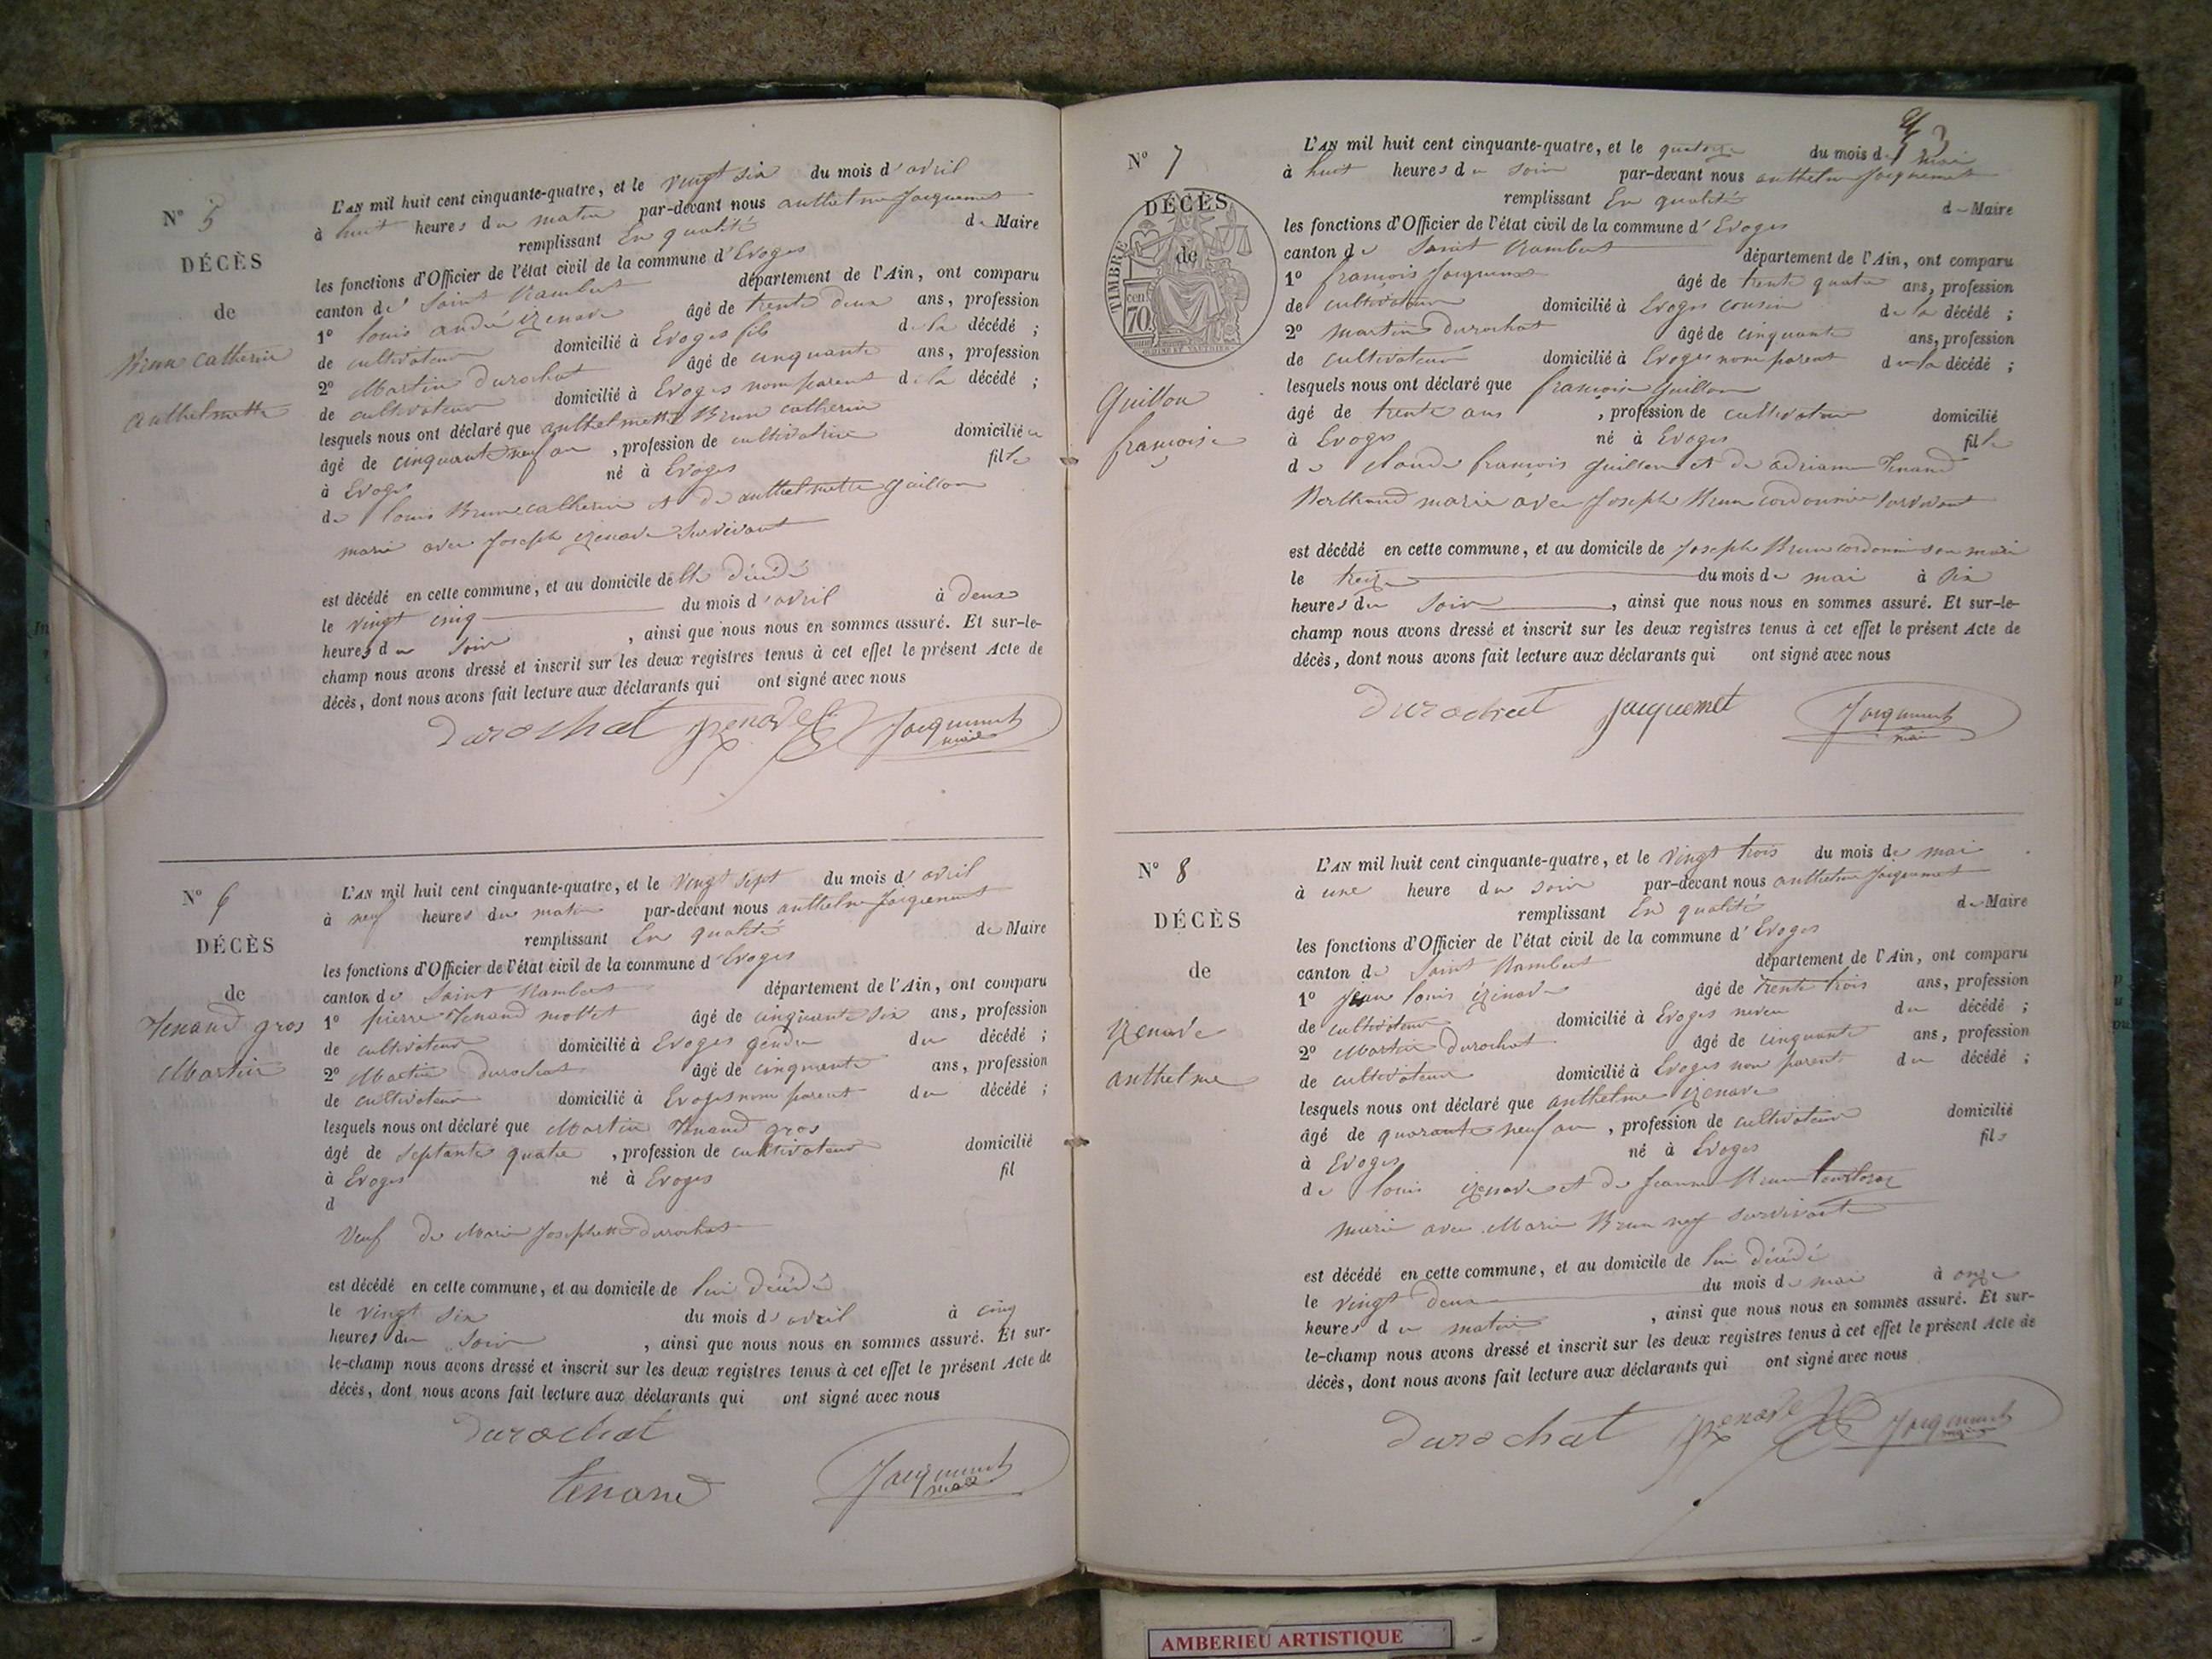 N° 5
DÉCÈS
de
Brun Catherin
anthelmette
L'AN mil huit cent cinquante-quatre, et le vingt six du mois d'avril
à huit heures du matin par-devant nous anthelme Jacquemet
remplissant En qualité de Maire
les fonctions d'Officier de l'état civil de la commune d'Evoges
canton de Saint Rambert département de l'Ain, ont comparu
1° louis andré izenave âgé de trente deux ans, profession
de cultivateur domicilié à Evoges fils de la décédé ;
2° Martin Durochat âgé de cinquante ans, profession
de cultivateur domicilié à Evoges non parent de la décédé ;
lesquels nous ont déclaré que anthelmette Brun catherin
âgé de cinquante neuf an , profession de cultivatrice domicilié e
à Evoges né à Evoges fille
de louis Brun catherin et de anthelmette guillon
marié avec Joseph izenave Survivant
est décédé en cette commune, et au domicile de lle décédé
le vingt cinq du mois d'avril à deux
heures du soir , ainsi que nous nous en sommes assuré. Et sur-le-
champ nous avons dressé et inscrit sur les deux registres tenus à cet effet le présent Acte de
décès, dont nous avons fait lecture aux déclarants qui ont signé avec nous
Durochat izenave Jacquemet
maire
N° 6
DÉCÈS
de
Tenand gros
Martin
L'AN mil huit cent cinquante-quatre, et le vingt sept du mois d'avril
à neuf heures du matin par-devant nous anthelme Jacquemet
remplissant En qualité de Maire
les fonctions d'Officier de l'état civil de la commune d'Evoges
canton de Saint Rambert département de l'Ain, ont comparu
1° pierre Tenand mottet âgé de cinquante six ans, profession
de cultivateur domicilié à Evoges gendre du décédé ;
2° Martin Durochat âgé de cinquante ans, profession
de cultivateur domicilié à Evoges non parent du décédé ;
lesquels nous ont déclaré que Martin Tenand gros
âgé de septante quatre , profession de cultivateur domicilié
à Evoges né à Evoges fil
d
Veuf de Marie Josephette durochat
est décédé en cette commune, et au domicile de lui décédé
le vingt six du mois d'avril à cinq
heures du soir , ainsi que nous nous en sommes assuré. Et sur-
le-champ nous avons dressé et inscrit sur les deux registres tenus à cet effet le présent Acte de
décès, dont nous avons fait lecture aux déclarants qui ont signé avec nous
Durochat
tenand Jacquemet
maire
N° 7
DÉCÈS
de
TIMBRE
cen
70
Guillon
françoise
L'AN mil huit cent cinquante-quatre, et le quatorze du mois de mai
à huit heures du soir par-devant nous anthelme Jacquemet
remplissant En qualité de Maire
les fonctions d'Officier de l'état civil de la commune d'Evoges
canton de Saint Rambert département de l'Ain, ont comparu
1° françois Jacquemet âgé de trente quatre ans, profession
de cultivateur domicilié à Evoges cousin de la décédé ;
2° martin durochat âgé de cinquante ans, profession
de cultivateur domicilié à Evoges non parent de la décédé ;
lesquels nous ont déclaré que françoise Guillon
âgé de trente ans , profession de cultivateur domicilié
à Evoges né à Evoges fille
de claude françois guillon et de adrianne Tenand
Berthand marié avec Joseph Brun cordonnier survivant
est décédé en cette commune, et au domicile de Joseph Brun cordonnier son mari
le treize du mois de mai à six
heures du soir , ainsi que nous nous en sommes assuré. Et sur-le-
champ nous avons dressé et inscrit sur les deux registres tenus à cet effet le présent Acte de
décès, dont nous avons fait lecture aux déclarants qui ont signé avec nous
Durochat Jacquemet Jacquemet
maire
N° 8
DÉCÈS
de
izenave
anthelme
L'AN mil huit cent cinquante-quatre, et le vingt trois du mois de mai
à une heure du soir par-devant nous anthelme Jacquemet
remplissant En qualité de Maire
les fonctions d'Officier de l'état civil de la commune d'Evoges
canton de Saint Rambert département de l'Ain, ont comparu
1° Jean louis izenave âgé de trente trois ans, profession
de cultivateur domicilié à Evoges neveu du décédé ;
2° Martin Durochat âgé de cinquante ans, profession
de cultivateur domicilié à Evoges non parent du décédé ;
lesquels nous ont déclaré que anthelme izenave
âgé de quarante neuf an , profession de cultivateur domicilié
à Evoges né à Evoges fils
de louis izenave et de Jeanne Brun
marié avec Marie Brun nez survivante
est décédé en cette commune, et au domicile de lui décédé
le vingt deux du mois de mai à onze
heures du matin , ainsi que nous nous en sommes assuré. Et sur-
le-champ nous avons dressé et inscrit sur les deux registres tenus à cet effet le présent Acte de
décès, dont nous avons fait lecture aux déclarants qui ont signé avec nous
Durochat izenave Jacquemet
maire
AMBERIEU ARTISTIQUE